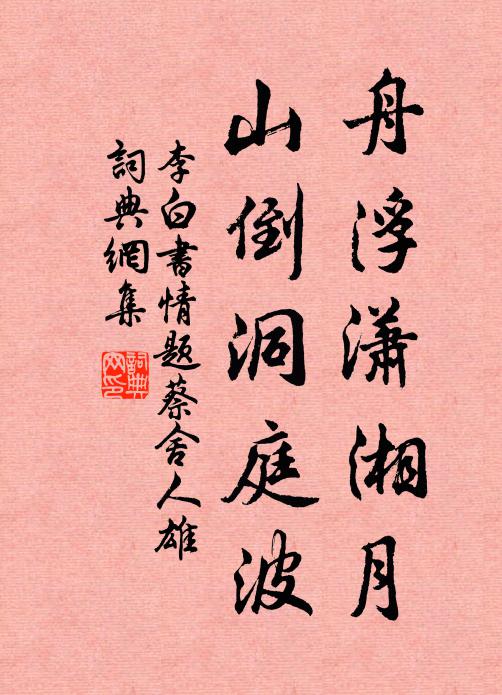 舟浮瀟湘月
山倒洞庭波
李白書情題蔡舍人雄
詞典網集
詞典网印